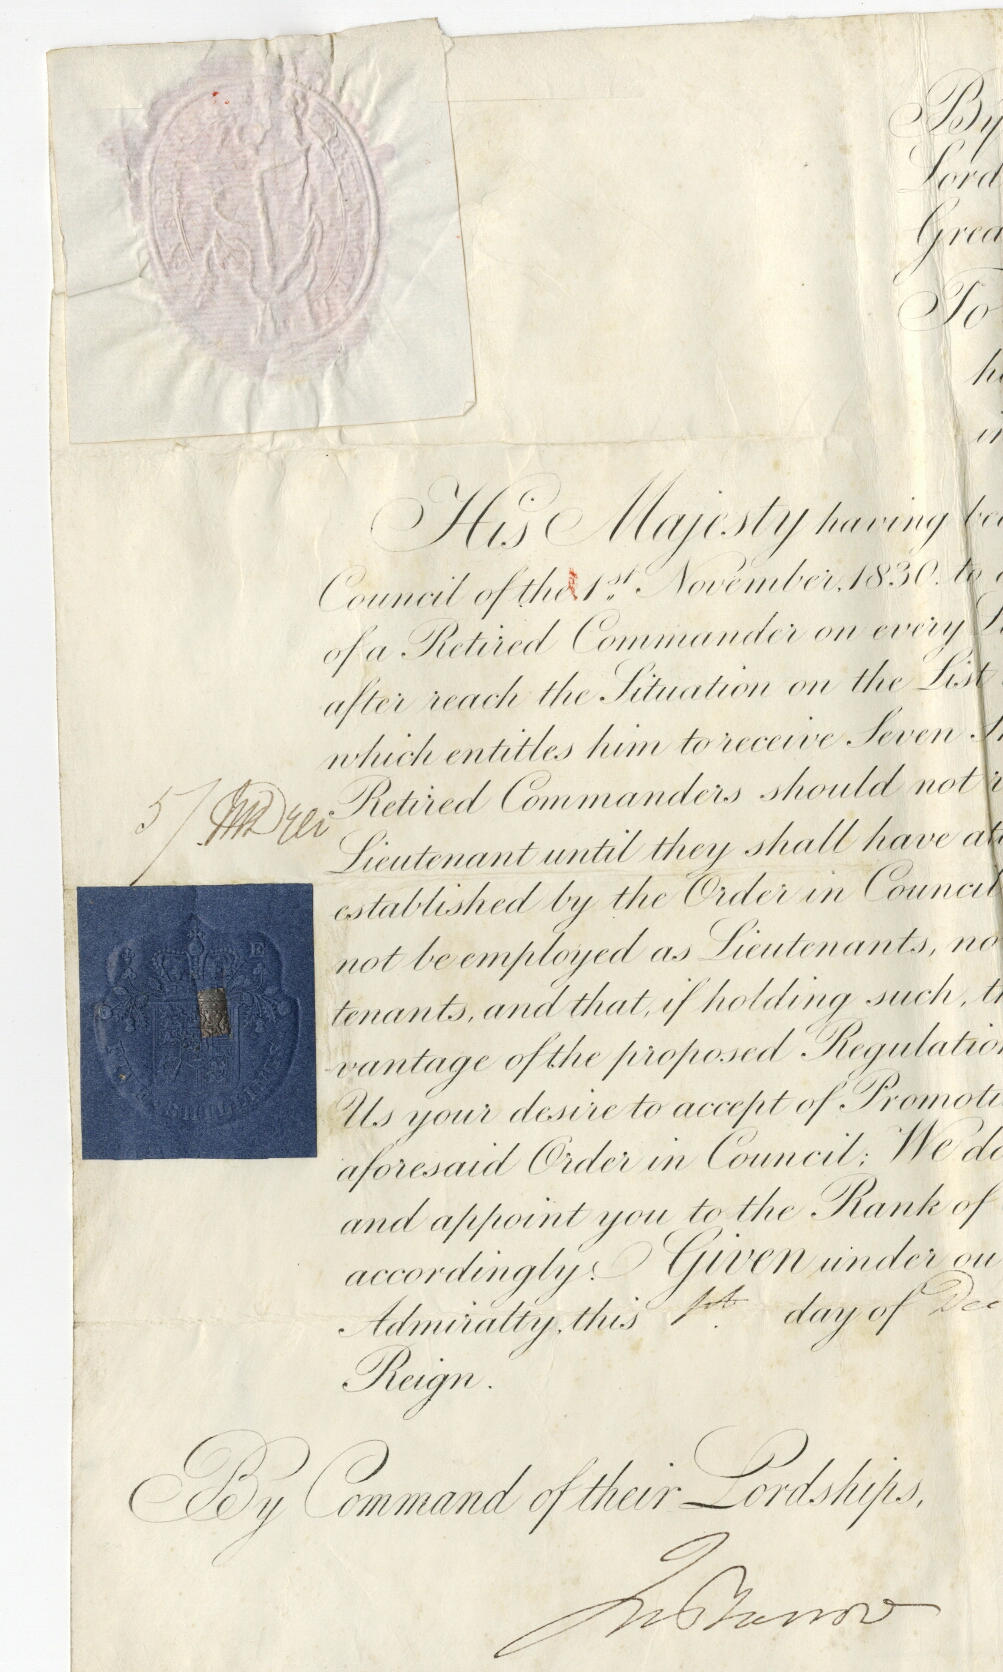 By
Lord
Grea
To
h
in
His Majesty having be
Council of the 1st November, 1830. to
of a Retired Commander on every
after reach the Situation on the List
which entitles him to receive Seven
Retired Commanders should not
5/
Lieutenant until they shall have at
established by the Order in Council
not be employed as Lieutenants, no
tenants, and that, if holding such, th
vantage of the proposed Regulation
Us your desire to accept of Promoti
aforesaid Order in Council; We do
and appoint you to the Rank of
accordingly. Given under ou
Admiralty, this 1st day of Dec
Reign.
By Command of their Lordships,
Jn Barrow